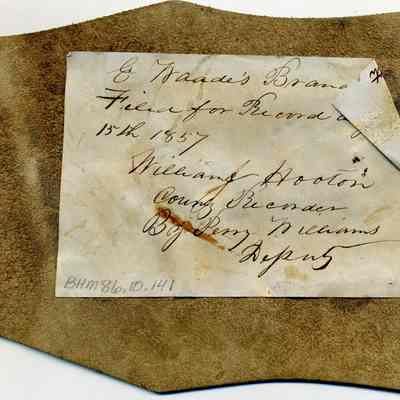 E Waade's Brand
Filed for Record
15th 1857
William Hooton
County Recorder
By Perry Williams
Deputy
BHM86.10.141